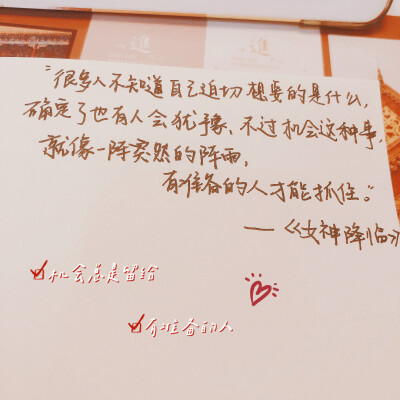 進
“很多人不知道自己迫切想要的是什么，
确定了也有人会犹豫、不过机会这种事，
就像一阵突然的阵雨，
有准备的人才能抓住。”
——《女神降临》
机会总是留给
有准备的人